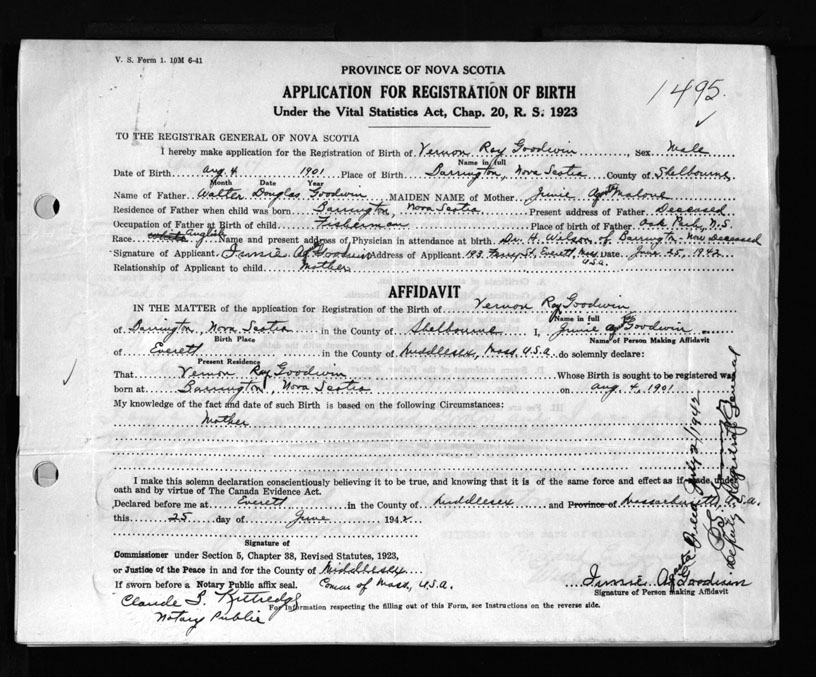 V. S. Form 1. 10M 6-41
PROVINCE OF NOVA SCOTIA
APPLICATION FOR REGISTRATION OF BIRTH
Under the Vital Statistics Act, Chap. 20, R. S. 1923
1495
TO THE REGISTRAR GENERAL OF NOVA SCOTIA
I hereby make application for the Registration of Birth of Vernon Roy Goodwin, Sex Male
Name in full
Date of Birth Aug. 4 1901 Place of Birth Barrington, Nova Scotia County of Shelbourne
Month Date Year
Name of Father Walter Douglas Goodwin MAIDEN NAME of Mother Malone
Residence of Father when child was born Barrington, Nova Scotia Present address of Father Deceased
Occupation of Father at Birth of child Fisherman Place of birth of Father Oak Park, N.S.
Race white English Name and present address of Physician in attendance at birth Dr. H. Wilson of Barrington - Now Deceased
Signature of Applicant Goodwin Address of Applicant 193 Ferry St, Everett, Mass. U.S.A. Date June 25, 1942
Relationship of Applicant to child Mother
AFFIDAVIT
IN THE MATTER of the application for Registration of the Birth of Vernon Roy Goodwin
Name in full
of Barrington, Nova Scotia in the County of Shelbourne I, Goodwin
Birth Place Name of Person Making Affidavit
of Everett in the County of Middlesex, Mass. U.S.A. do solemnly declare:
Present Residence
That Vernon Roy Goodwin Whose Birth is sought to be registered was
born at Barrington, Nova Scotia on Aug. 4, 1901
My knowledge of the fact and date of such Birth is based on the following Circumstances:
Mother
I make this solemn declaration conscientiously believing it to be true, and knowing that it is of the same force and effect as if made under
oath and by virtue of The Canada Evidence Act.
Declared before me at Everett in the County of Middlesex and Province of Massachusetts, U.S.A.
this 25 day of June 1942
Signature of
Commissioner under Section 5, Chapter 38, Revised Statutes, 1923,
or Justice of the Peace in and for the County of Middlesex
If sworn before a Notary Public affix seal. Comm of Mass, U.S.A.
Goodwin
Signature of Person Making Affidavit
Claude
For Information respecting the filling out of this Form, see Instructions on the reverse side.
Notary Public
July 2/1942
Deputy Registrar General